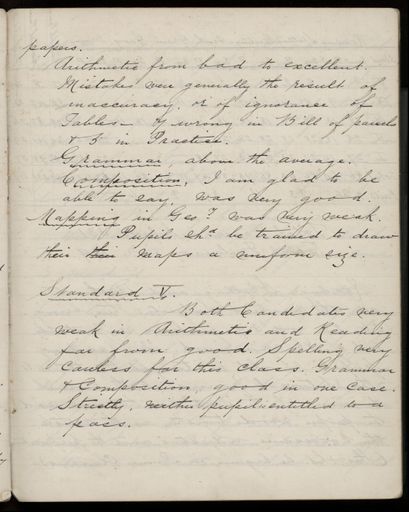 papers.
Arithmetic from bad to excellent.
Mistakes were generally the result of
inaccuracy, or of ignorance of
Tables - 7 wrong in Bill of parcels
& 3 in Practice.
Grammar, above the average.
Composition, I am glad to be
able to say, was very good.
Mapping in Geo.y was very weak.
Pupils shd be trained to draw
their their maps a uniform size.
Standard V.
Both Candidates very
weak in Arithmetic and Reading
far from good. Spelling very
careless for this class. Grammar
& Composition good in one case.
Strictly, neither pupil entitled to a
pass.